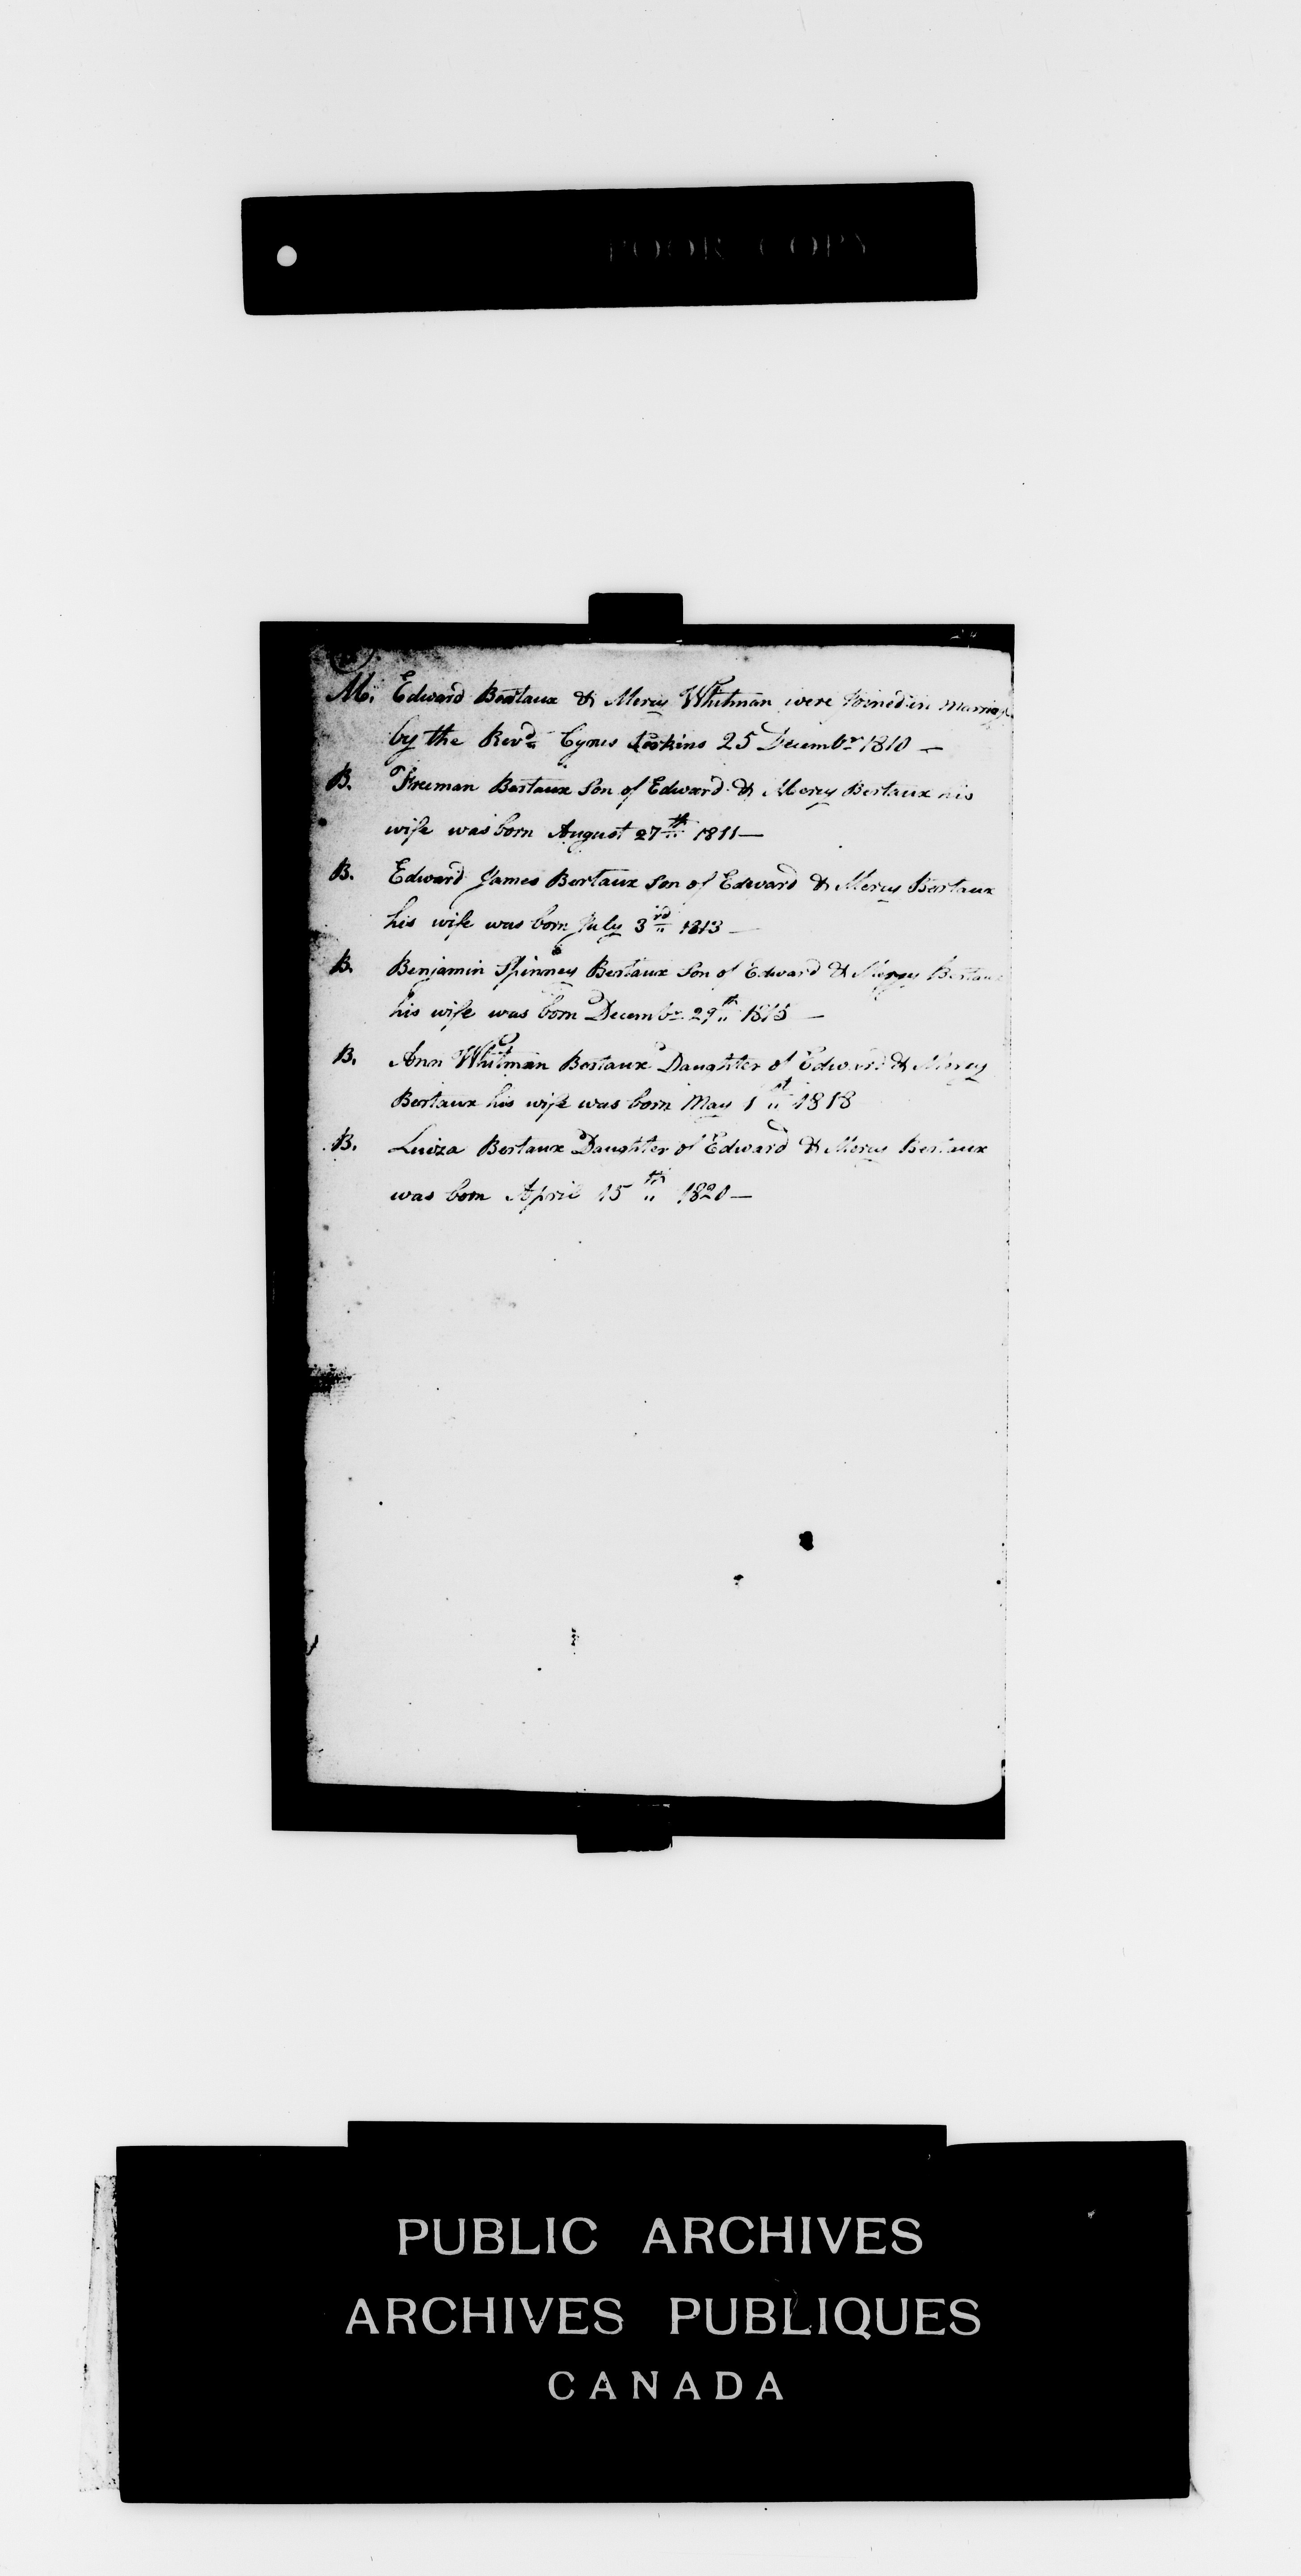 POOR COPY
M. Edward Bertaux & Mercy Whitman were Joined in marriage
by the Revd. Cyrus Perkins 25 Decembr 1810 —
B. Freeman Bertaux Son of Edward & Mercy Bertaux his
wife was born August 27th 1811 —
B. Edward James Bertaux Son of Edward & Mercy Bertaux
his wife was born July 3rd 1813 —
B. Benjamin Spinney Bertaux Son of Edward & Mercy Bertaux
his wife was born Decembr. 29th 1815 —
B. Ann Whitman Bertaux Daughter of Edward & Mercy
Bertaux his wife was born May 1st 1818
B. Luiza Bertaux Daughter of Edward & Mercy Bertaux
was born April 15th 1820 —
PUBLIC ARCHIVES
ARCHIVES PUBLIQUES
CANADA